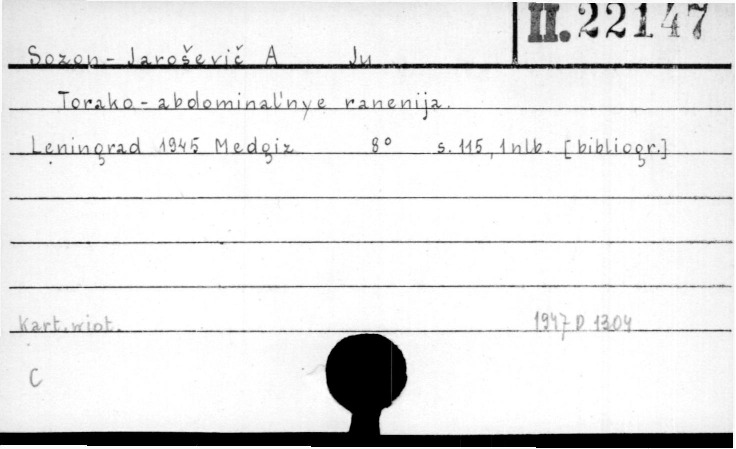 II. 22147
Sozon-Jaroševič A Ju
Torako-abdominal'nye ranenija.
Leningrad 1945 Medgiz 8° s. 115, 1 nlb. [bibliogr.]
Kart. wiot. 1947 D 1304
C